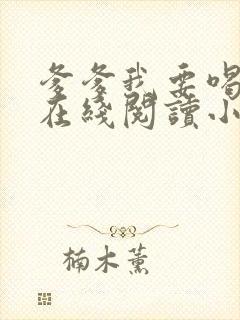 爹爹我要喝
在綫閱讀小
楠木薰